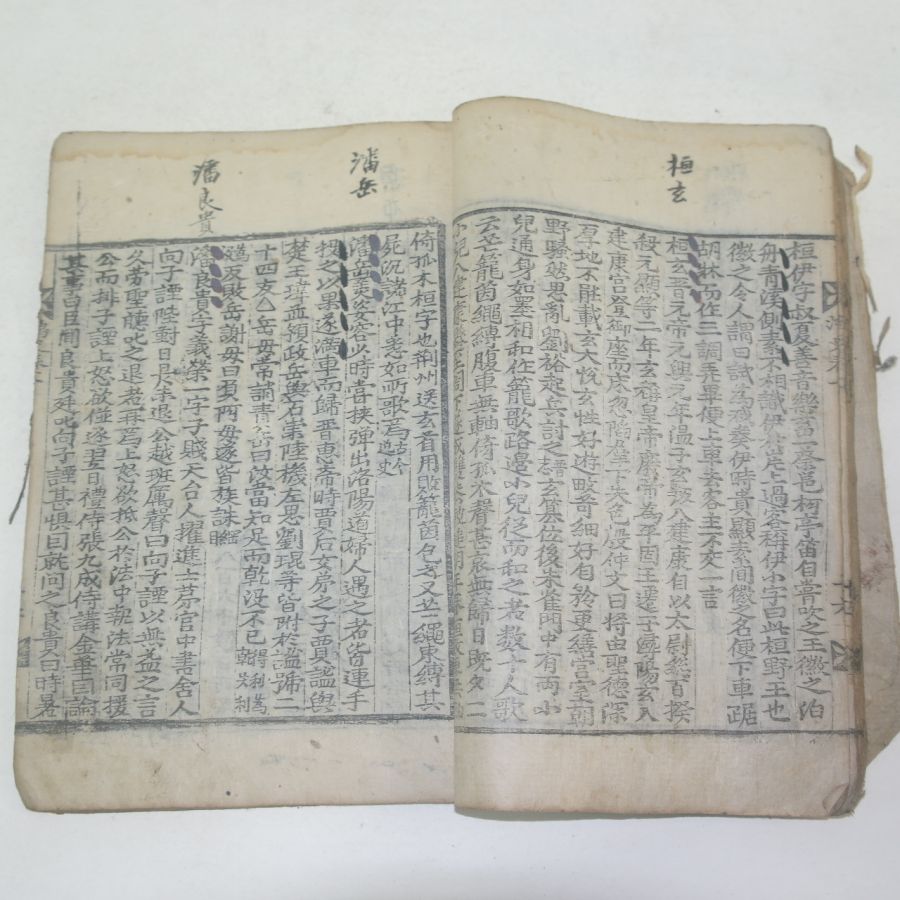 桓玄
桓伊字叔夏善音樂蓄一蔡邕柯亭笛自嘗吹之王徽之泊
舟青溪側素不相識伊於岸上過客稱伊小字曰此桓野王也
徽之令人謂曰試爲我奏伊時貴顯素聞徽之名便下車踞
胡牀而作三調弄畢便上車去客主不交一言
桓玄晋元帝元興元年温子玄叛入建康自以太尉總百揆
殺元顯等二年玄称皇帝廢帝爲平固王遷于潯陽玄入
建康宮登御座而床忽陷群下失色殷仲文曰將由聖德深
厚地不能載玄大悅玄性好遊畋奇細好自矜更繕宮室朝
野騷然思亂劉裕起兵討之玄簒位後朱雀門中有両小
兒通身如墨相和作籠歌路邊小兒從而和之者數十人歌
云芒籠茵繩縛腹車無軸倚孤木聲甚哀無歸日旣夕二
潘岳
潘良貴
倚孤木桓字也荊州送玄首用敗籠茵包之又芒繩束縛其
屍沉諸江中悉如所歌焉古今
逸史
潘岳美姿容少時嘗挾弹出洛陽道婦人遇之者皆連手
投之以果遂滿車而歸晋惠帝時賈后女弟之子賈謐與
楚王瑋並預政岳與石崇陸機左思劉琨等皆附於謐號二
十四友岳母常誚責岳曰汝當知足而乾没不已
及敗岳謝母曰負阿母遂皆族誅
潘良貴字義榮一字子賤天台人擢進士第官中書舍人
向子諲陛對日昃未退公越班厲聲曰向子諲以無益之言
久劳聖聽叱之退者再爲上怒欲抵公於法中執法常同援
公而排子諲上怒欲併逐翌日禮侍張九成侍講金華因論
其事上曰聞良貴廷叱向子諲甚懼曰就問之良貴曰時暑